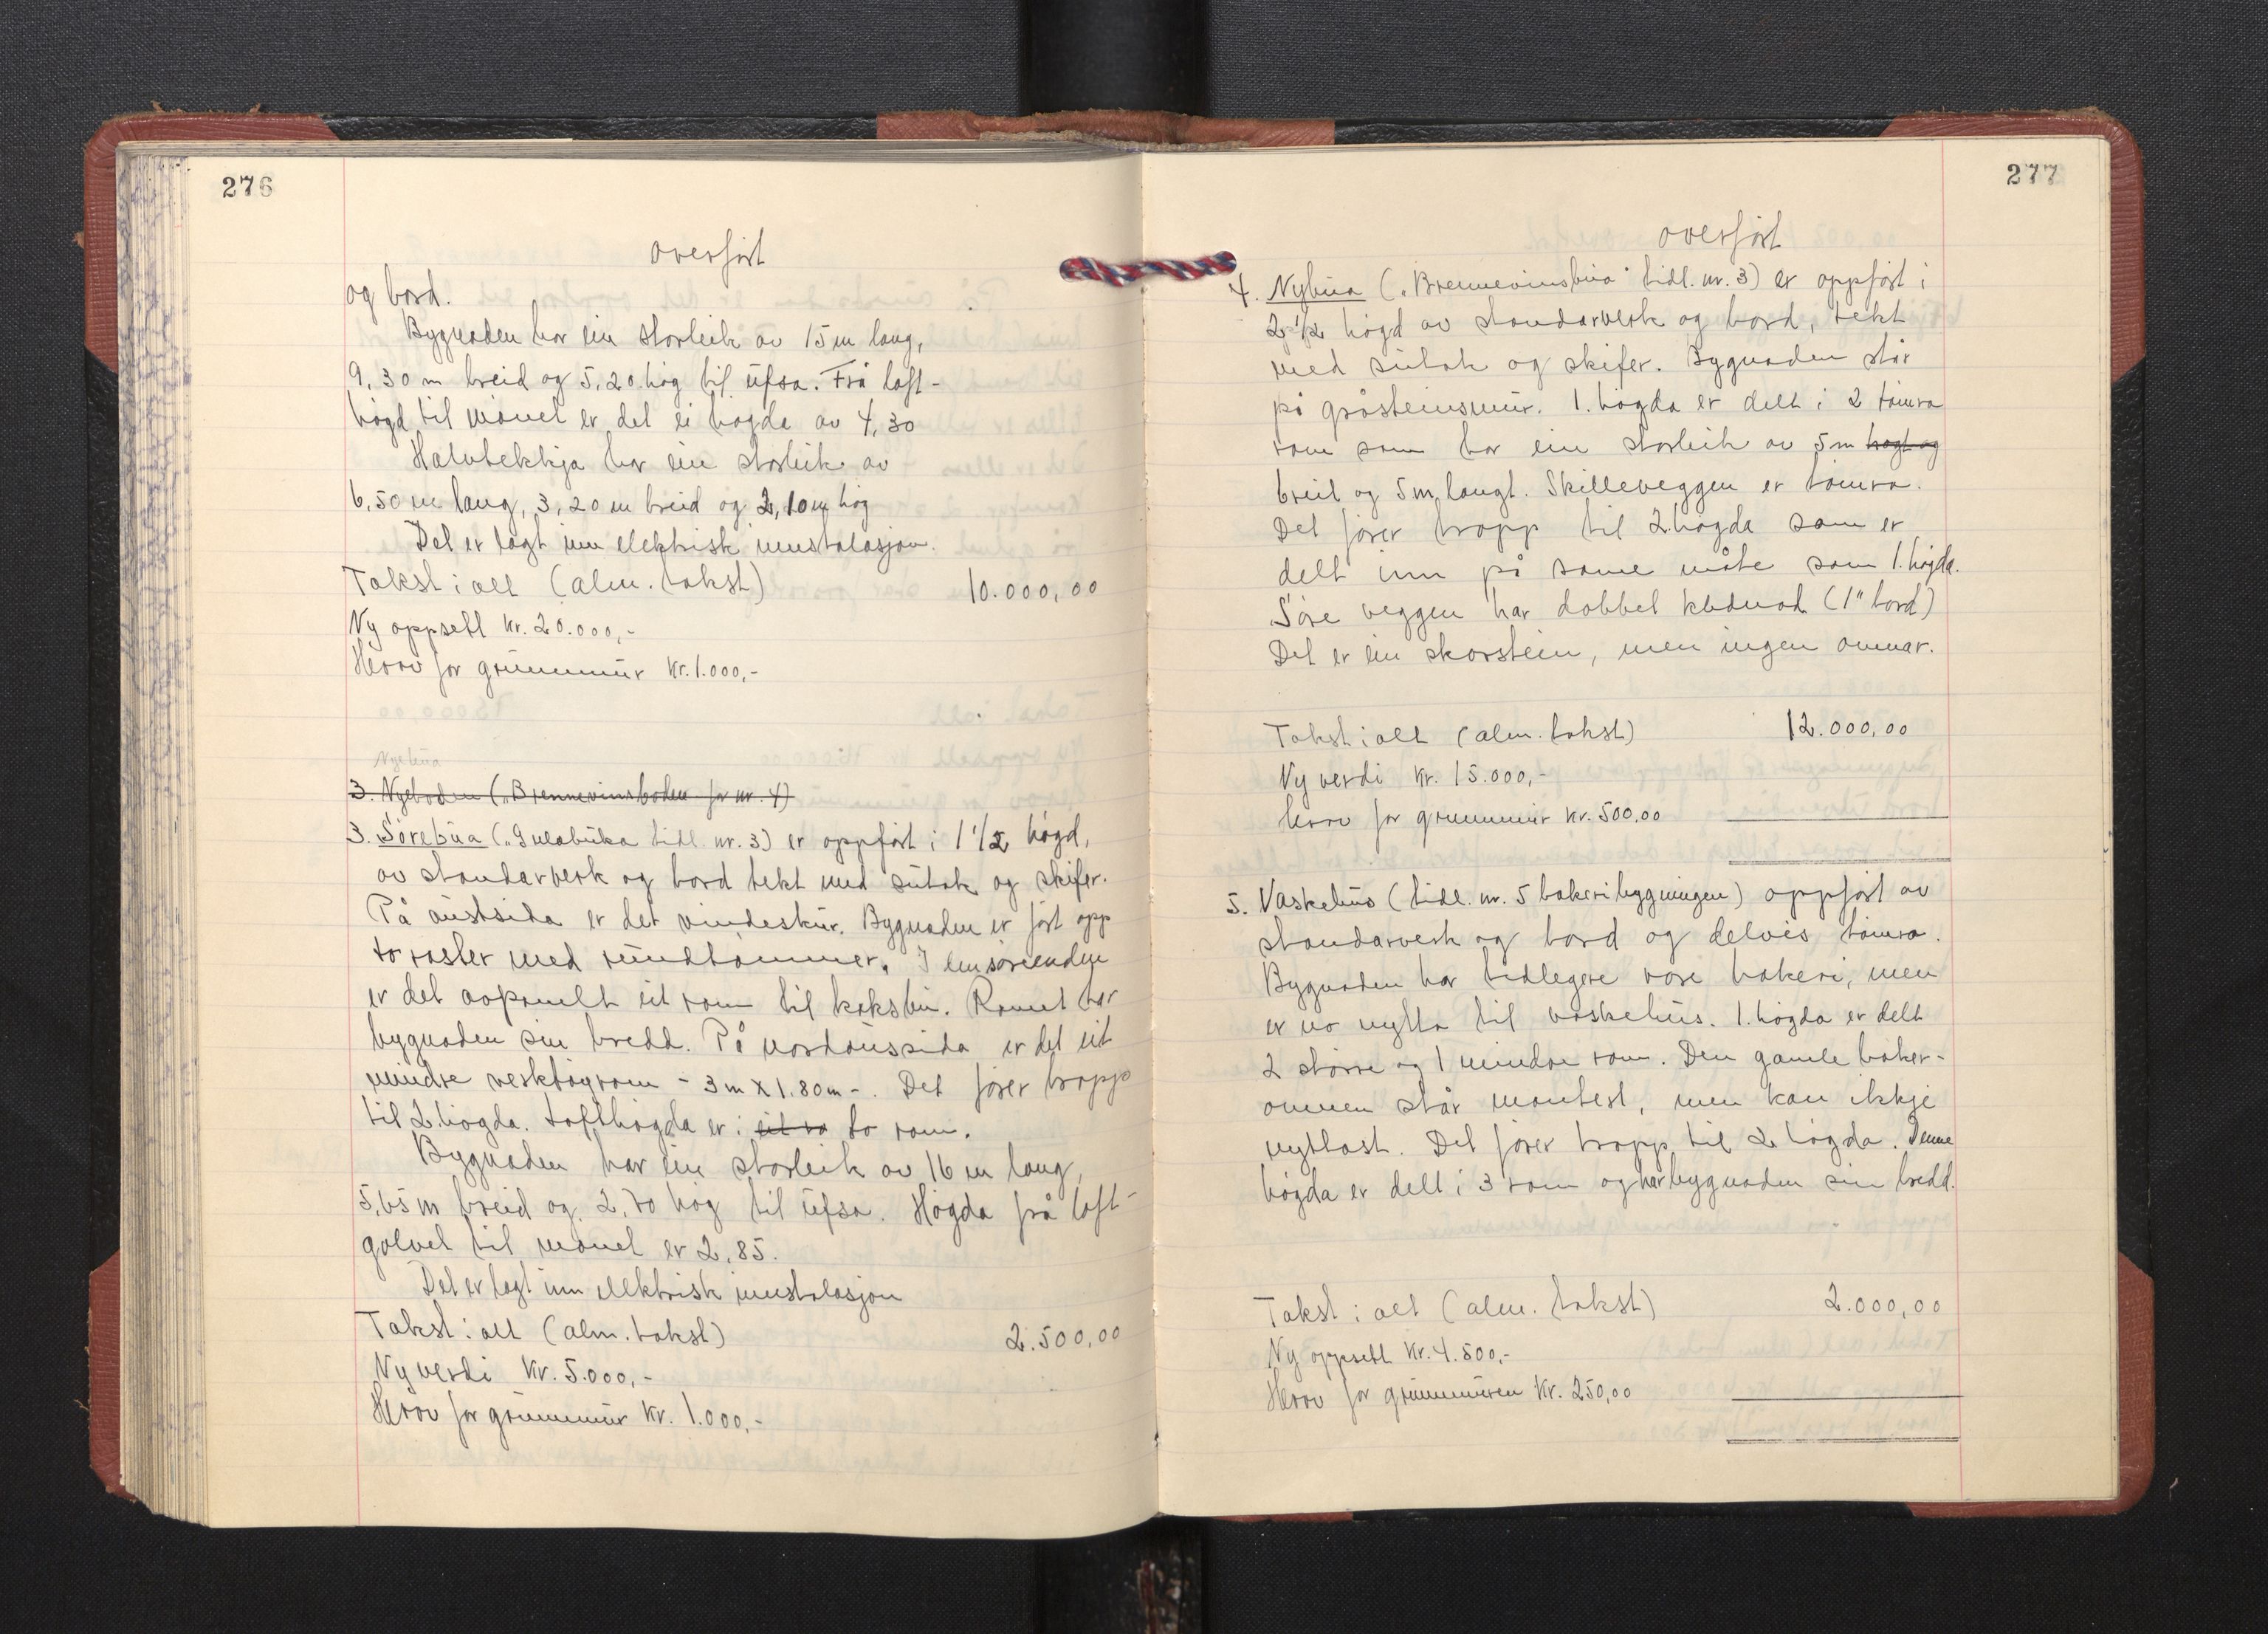 276
overført
og bord.
Bygnaden har ein storleik av 15 m lang,
9,30 m breid og 5,20 høg til ufsa. Frå loft-
høgd til mønet er det ei høgda av 4,30
Halvtekkja har ein storleik av
6,50 m lang, 3,20 m breid og 2,10 m høg
Det er lagt inn elektrisk innstalasjon.
Takst i alt (alm. takst) 10.000,00
Ny oppsett kr. 20.000,-
Herav for grunnmur kr. 1.000,-
Nyebua
3. Nyeboden („Brennevinsboden for nr. 4)
3. Sørebua („Gulabuka tidl. nr. 3) er oppført i 1 1/2 høgd,
av standarverk og bord tekt med sutak og skifer.
På austsida er det vindeskur. Bygnaden er ført opp
to raster med rundtømmer. I
er det avpanelt eit rom til koksbu. Romet har
bygnaden sin bredd. På nordaussida er det eit
mindre verktøgrom - 3 m x 1.80 m -. Det fører tropp
til 2. høgda. Lofthøgda er i eit ro to rom.
Bygnaden har ein storleik av 16 m lang,
5,65 m breid og 2,70 høg til ufsa. Høgda frå loft-
golvet til mønet er 2,85.
Det er lagt inn elektrisk innstalasjon
Takst i alt (alm. takst) 2.500,00
Ny verdi kr. 5.000,-
Herav for grunnmur kr. 1.000,-
277
overført
4. Nybua („Brennevinsbua" tidl. nr. 3) er oppført i
2 1/2 høgd av standarverk og bord, tekt
med sutak og skifer. Bygnaden står
på gråsteinsmur. 1. høgda er delt i 2 tømra
rom som har ein storleik av 5 m høgt og
breit og 5 m langt. Skilleveggen er tømra.
Det fører tropp til 2. høgda som er
delt inn på same måte som 1. høgda.
Søre veggen har dobbel klednad (1" bord)
Det er ein skorstein, men ingen omnar.
Takst i alt (alm. takst) 12.000,00
Ny verdi kr. 15.000,-
herav for grunnmur kr. 500,00
5. Vaskehus (tidl. nr. 5 bakeribygningen) oppført av
standarverk og bord og delvis tømra.
Bygnaden har tidlegere vore bakeri, men
er no nytta til vaskehus. 1. høgda er delt
2 større og 1 mindre rom. Den gamle baker-
omnen står montert, men kan ikkje
nyttast. Det fører tropp til 2 høgda. Denne
høgda er delt i 3 rom og har bygnaden sin bredd.
Takst i alt (alm. takst) 2.000,00
Ny oppsett kr. 4.500,-
Herav for grunnmuren kr. 250,00